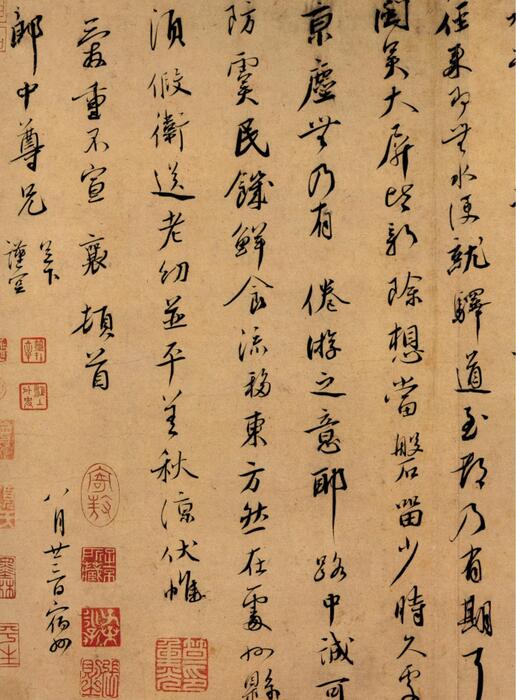 來即無水便就驛道至都乃有期
大屏皆新除想當磐留少時久處
京塵無乃有 倦游之意耶路中誠可
防虞民饑鮮食流移東方然在處州縣
須假衛送老幼並平善秋涼伏惟
愛重不宣 襄頓首
郎中尊兄
足下
謹空
八月廿三日宿州